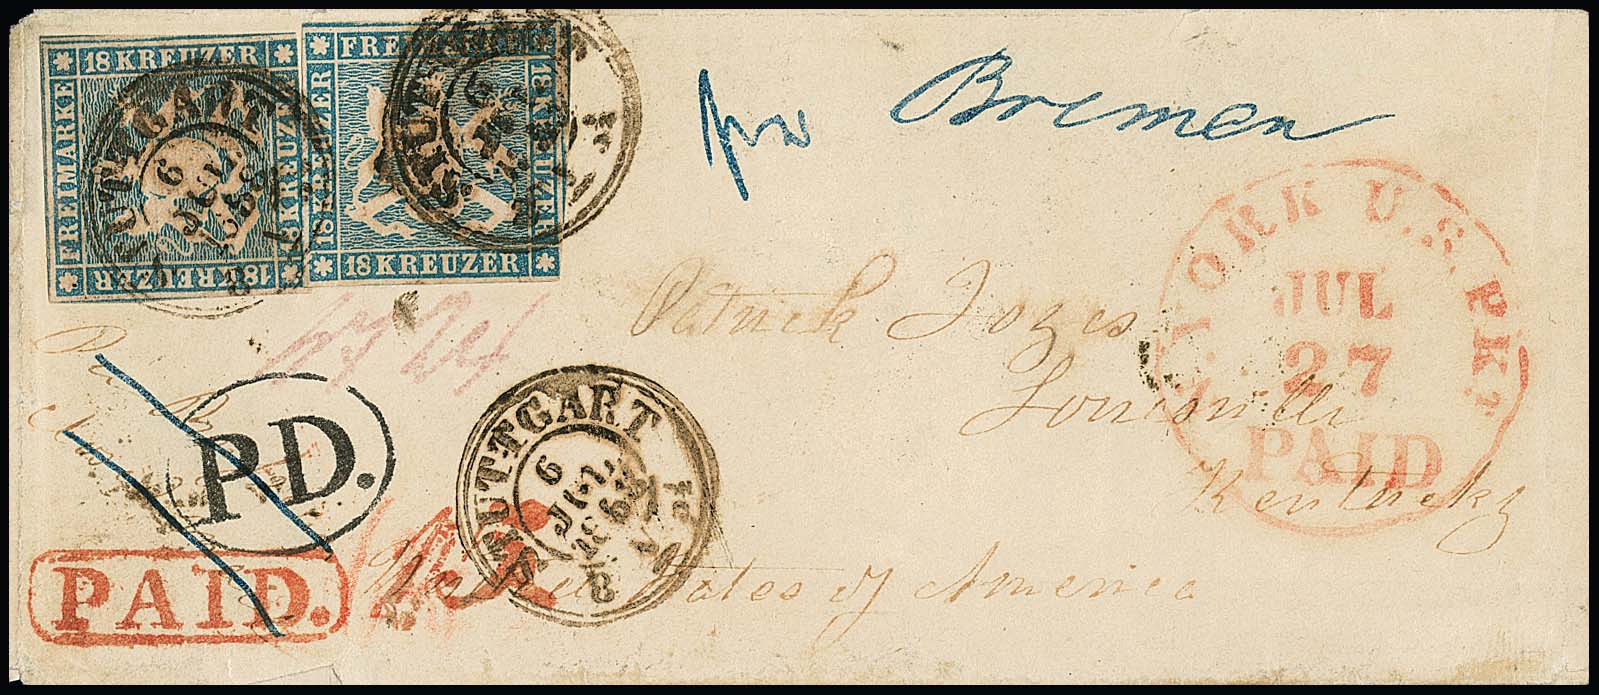 18 KREUZER
FREIMARKE
18 KREUZER
18 KREUZER
FREIMARKE
18 KREUZER
18 KREUZER
18 KREUZER
STUTTGART
6
JUL
STUTTGART
6
Bremen
YORK U.S. PKT
JUL
27
PAID
Patrick
Louisville
Kentucky
States of America
P.D.
PAID.
STUTTGART
6
JUL
186